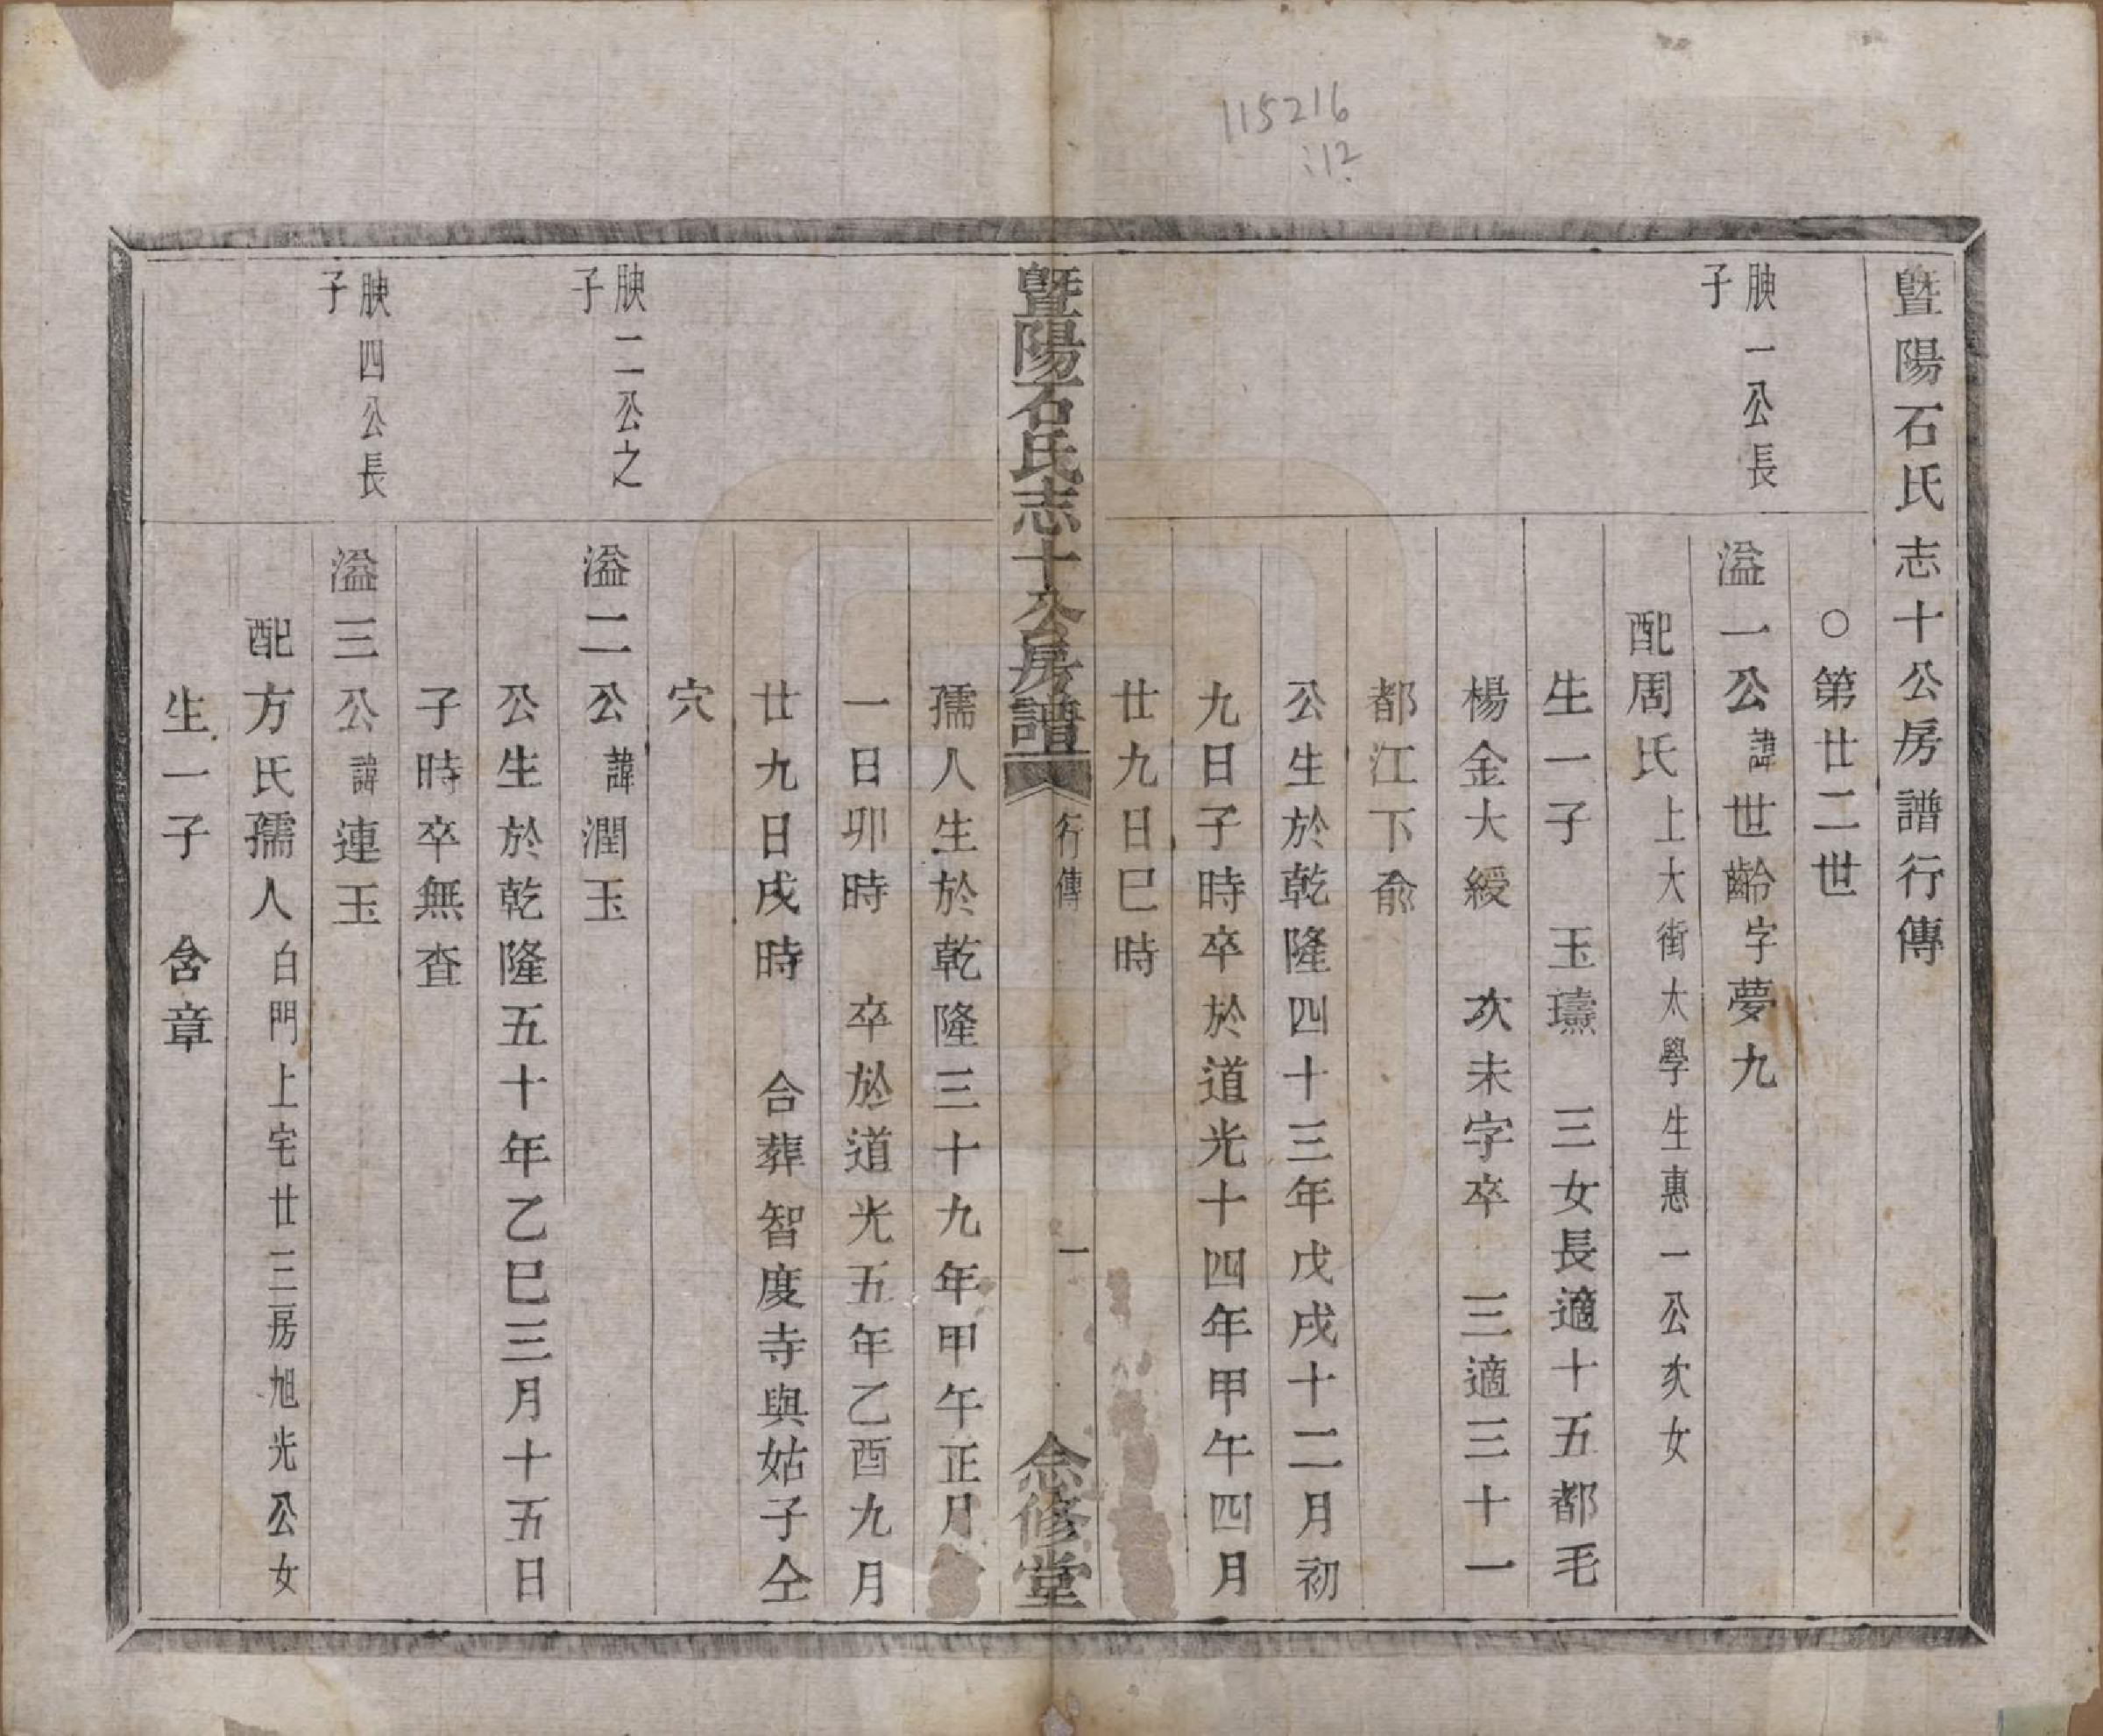 115216
:12
暨陽石氏志十公房譜行傳
○第廿二世
腴一公長
子
溢一公諱世齡字夢九
配周氏上大街太學生惠一公次女
生一子　玉璹　三女長適十五都毛
楊金大綬　次未字卒　三適三十一
都江下俞
公生於乾隆四十三年戊戌十二月初
九日子時卒於道光十四年甲午四月
廿九日巳時
暨陽石氏志十公房譜　行傳　一　念修堂
孺人生於乾隆三十九年甲午正月
一日卯時　卒於道光五年乙酉九月
廿九日戌時　合葬智度寺與姑子仝
穴
腴二公之
子
溢二公諱潤玉
公生於乾隆五十年乙巳三月十五日
子時卒無查
腴四公長
子
溢三公諱連玉
配方氏孺人白門上宅廿三房旭光公女
生一子　含章